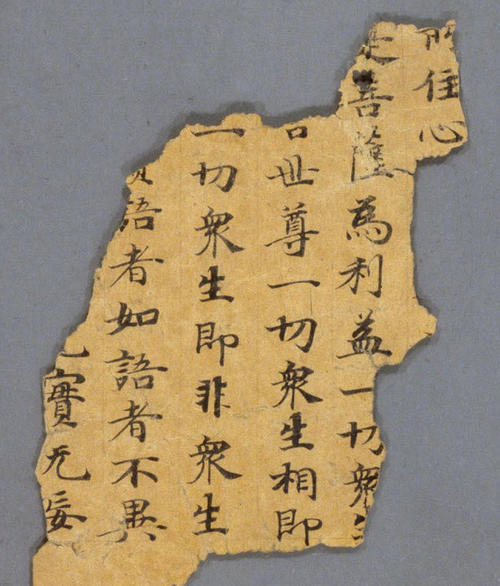 所住心
提菩薩為利益一切衆生
言世尊一切衆生相即
一切衆生即非衆生
實語者如語者不異
无實无妄